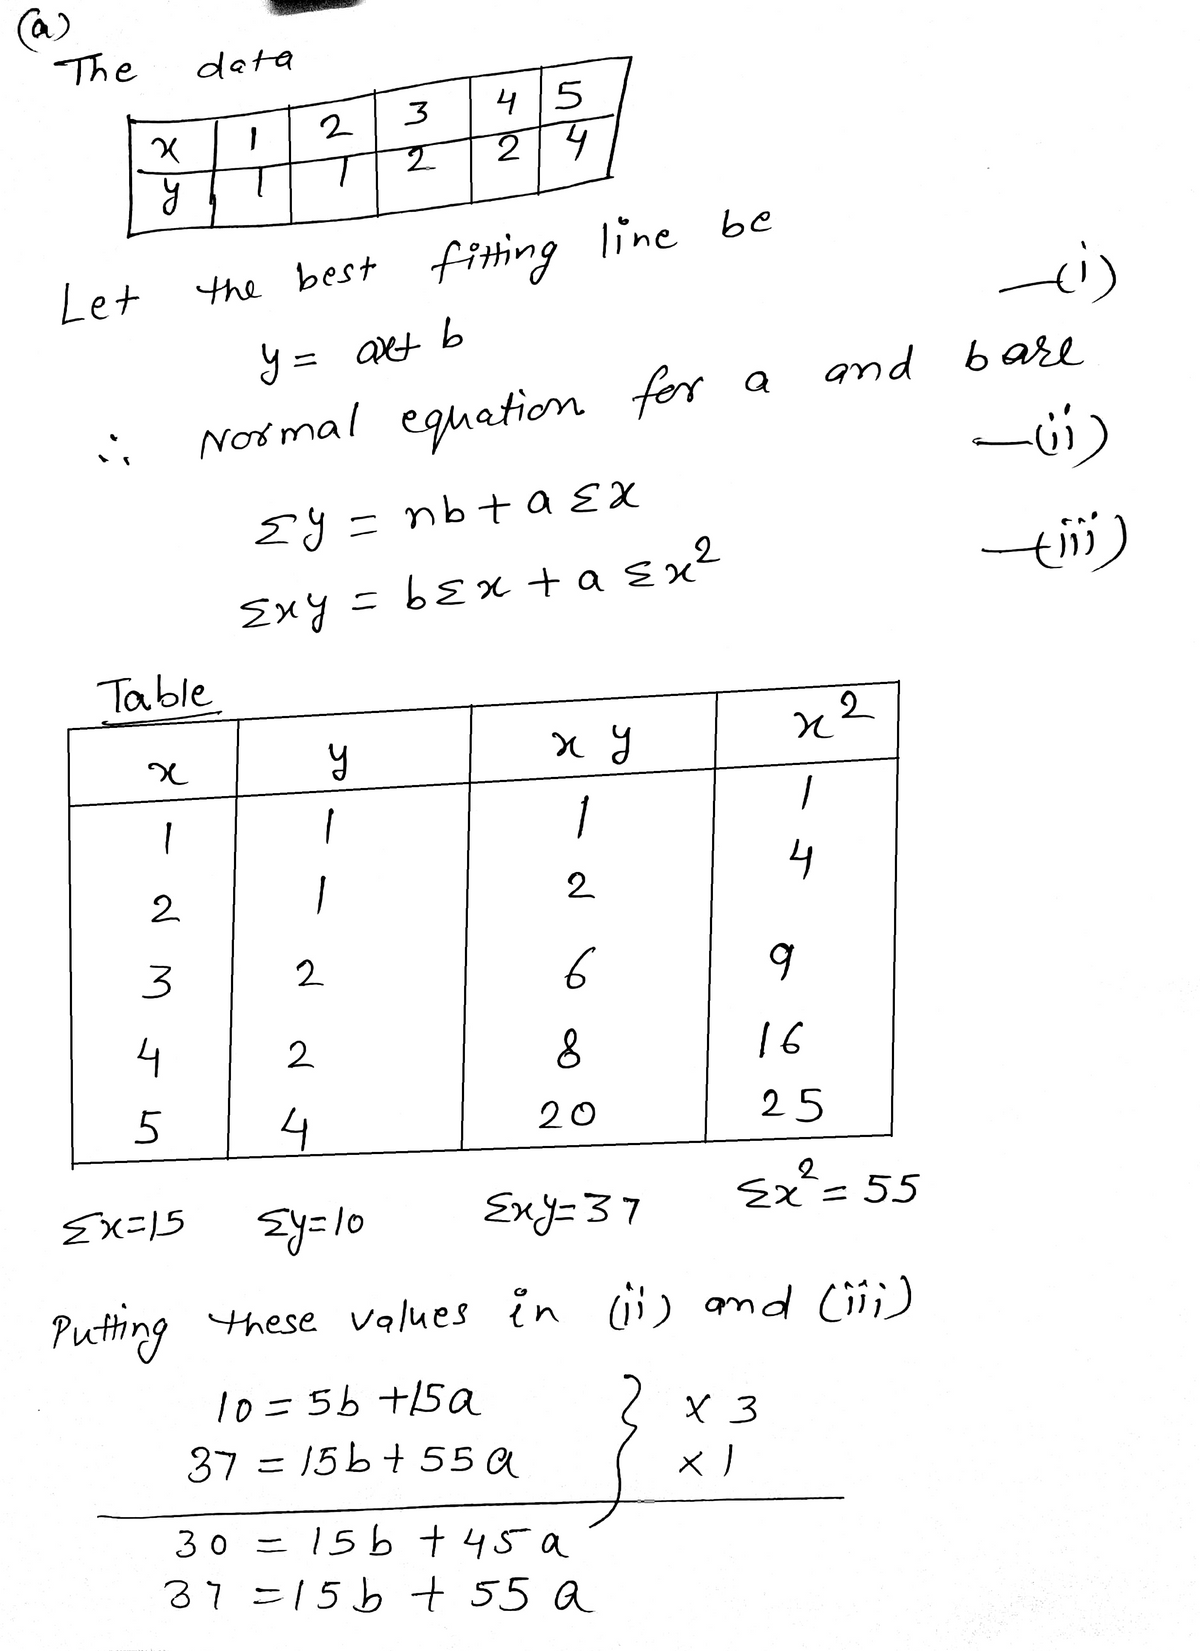 (a)
The data
x 1 2 3 4 5
y 1 1 2 2 4
Let the best fitting line be
y = ax+ b —(i)
∴ Normal equation for a and b are
Σy = nb + a Σx —(ii)
Σxy = bΣx + a Σx² —(iii)
Table
x y xy x²
1 1 1 1
2 1 2 4
3 2 6 9
4 2 8 16
5 4 20 25
Σx=15 Σy=10 Σxy=37 Σx²=55
Putting these values in (ii) and (iii)
10 = 5b +15a } × 3
37 = 15b + 55a × 1
30 = 15b + 45a
37 = 15b + 55a